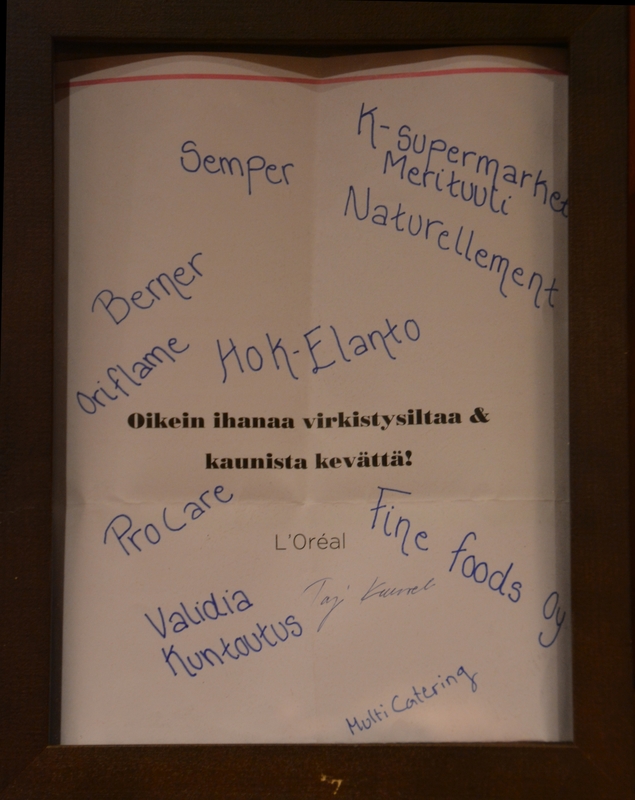 K-supermarket
Merituuti
Semper
Naturellement
Berner
Oriflame
HOK-Elanto
Oikein ihanaa virkistysiltaa &
kaunista kevättä!
ProCare
L'Oréal
Fine foods Oy
Validia
Kuntoutus
Multi Catering